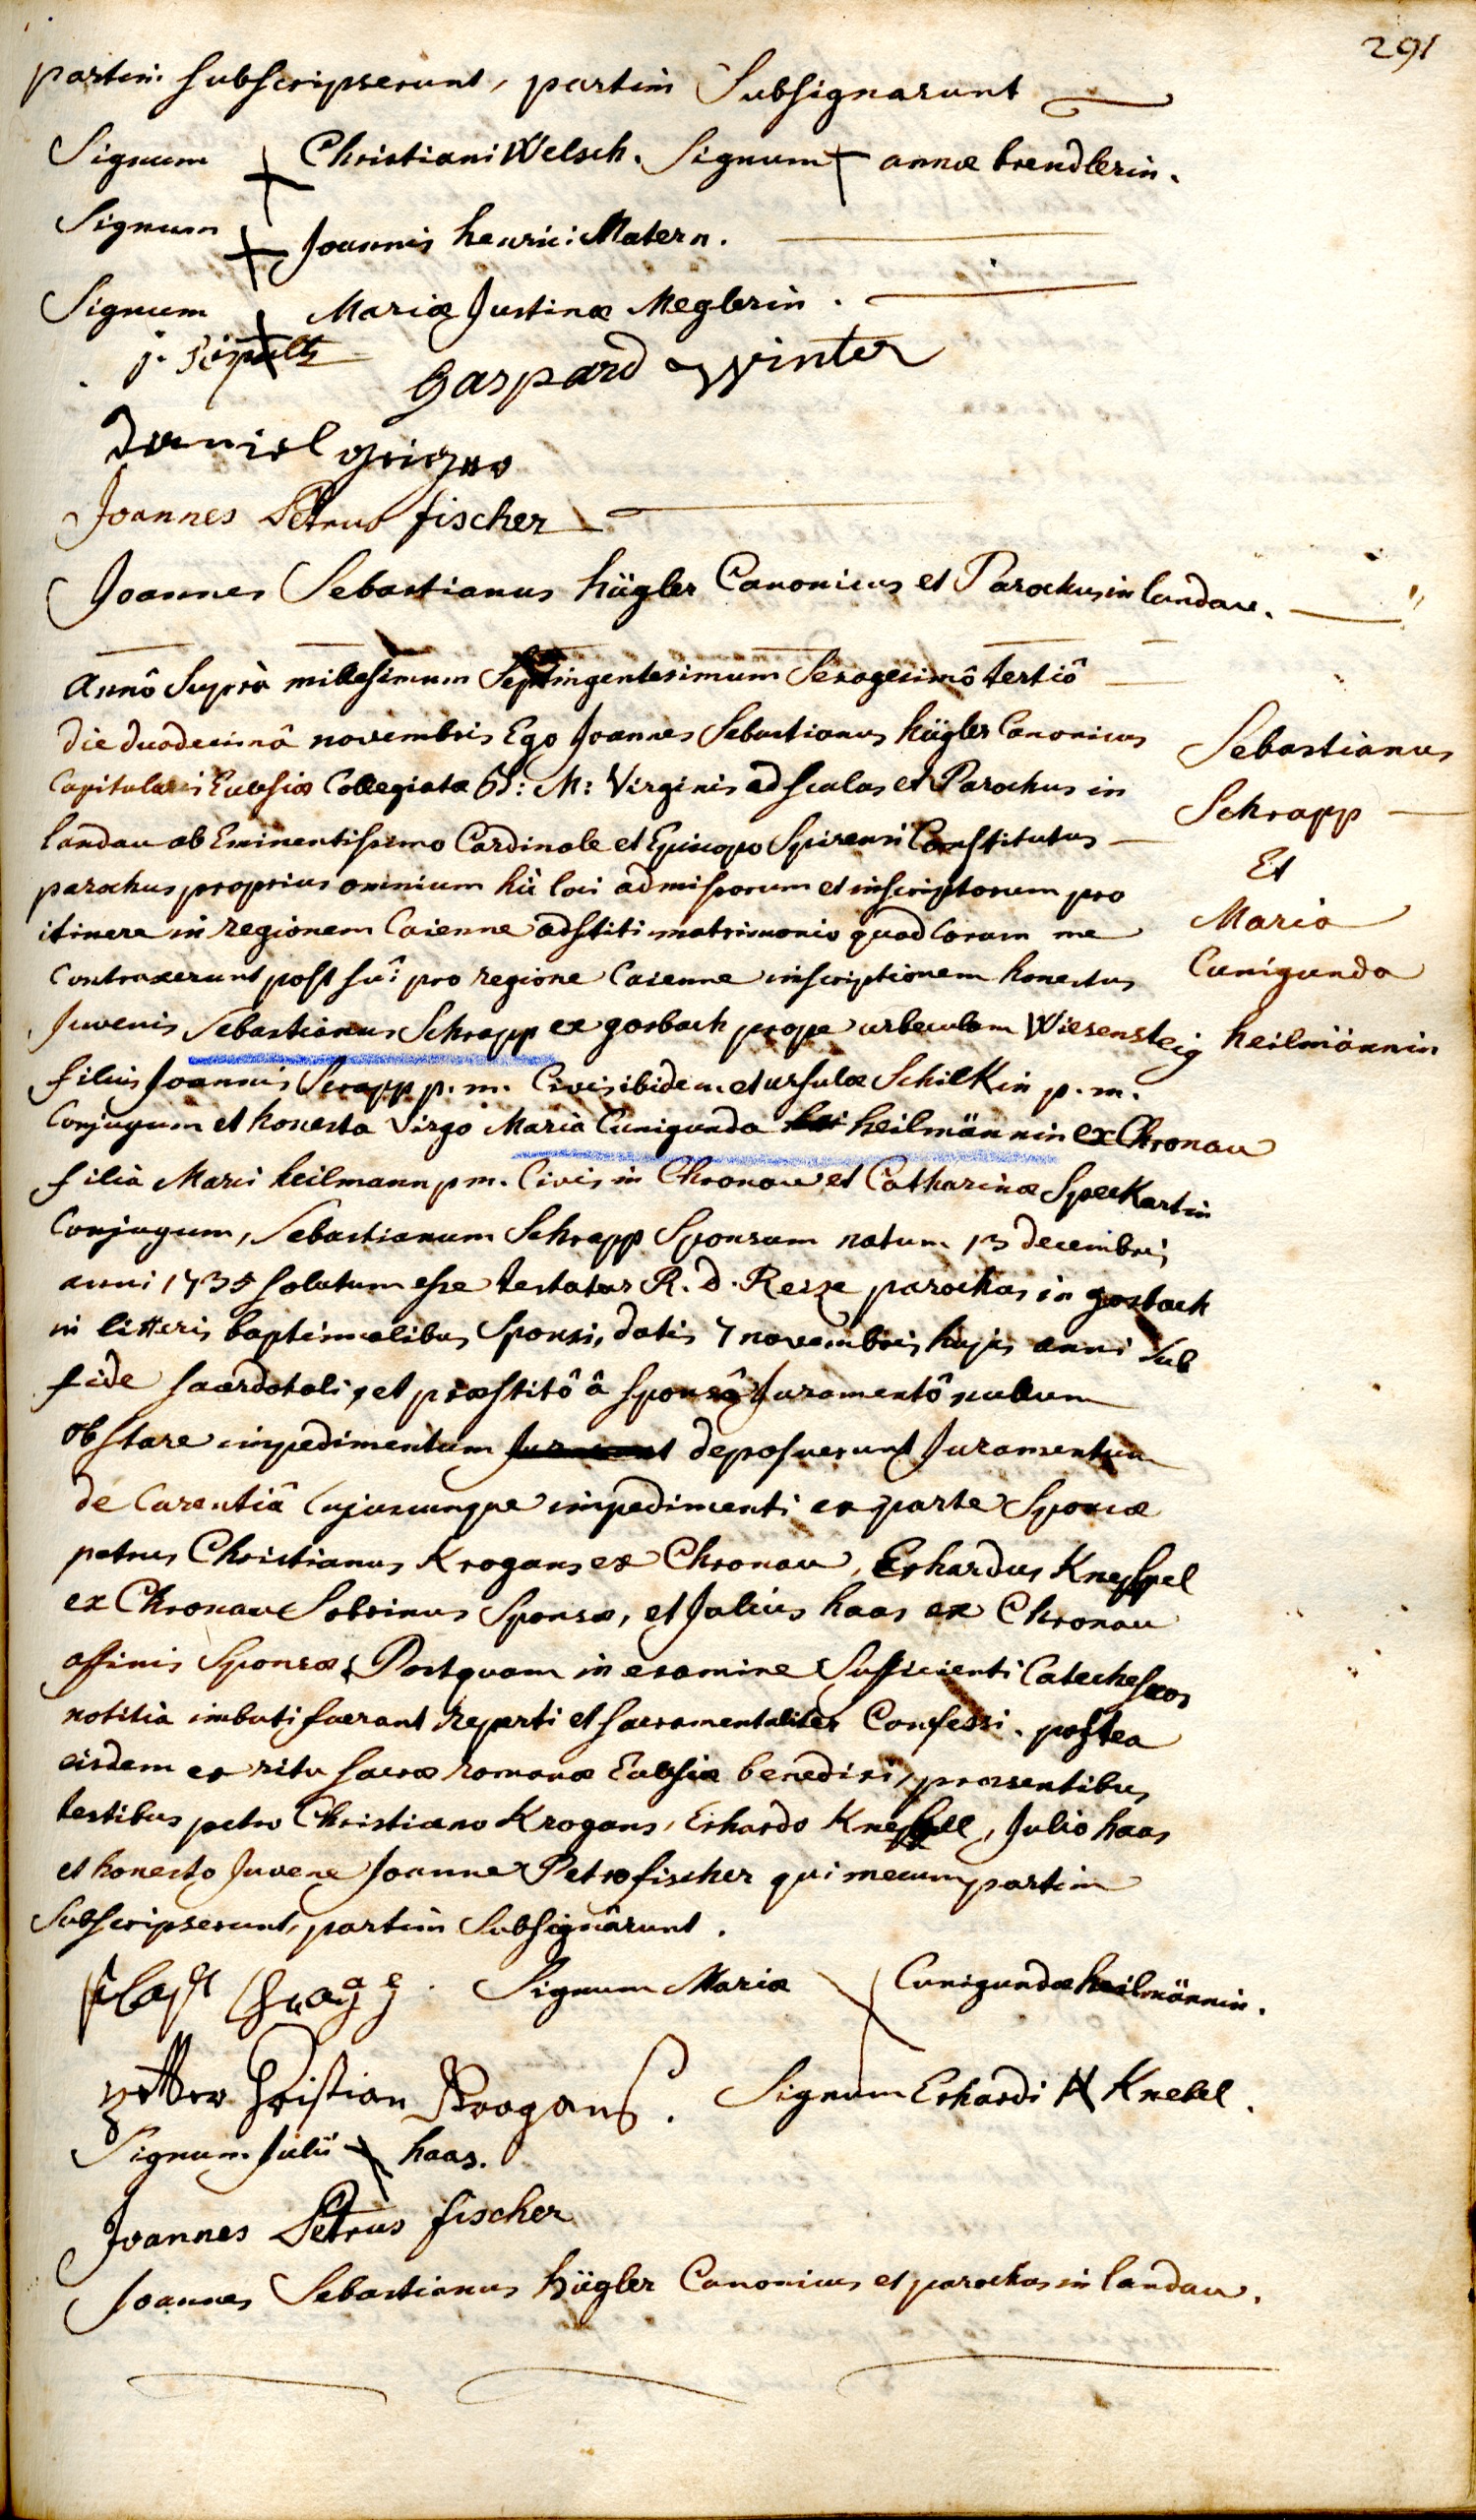 291
partim subscripserunt, partim Subsignarunt
Signum Christiani Welsch. Signum annæ brendlerin.
Signum Joannis henrici Matern.
Signum Mariæ Justinæ Meglerin.
j.
gaspard Winter
Daniel
Joannes Petrus fischer
Joannes Sebastianus hügler Canonicus et Parochus in landau.
Annô Suprà millesimum Septingentesimum Sexagesimô tertiô
die duodecimâ novembris Ego Joannes Sebastianus hügler Canonicus
Capitularis Ecclesiæ Collegiatæ B: M: Virginis ad scalas et Parochus in
landau ab Eminentissimo Cardinale et Episcopo Spirensi Constitutus
parochus proprius omnium hîc loci admissorum et inscriptorum pro
itinere in regionem Caienne adstiti matrimonio quod Coram me
Contraxerunt post suî pro regione Caienne inscriptionem honestus
Juvenis Sebastianus Schrapp ex gosbach prope urbeculam Wiesensteig
filius Joannis Scrapp p. m. Civis ibidem et ursulæ Schilkin p. m.
Conjugum et honesta Virgo Maria Cunigunda heilmännin ex Chronau
filia Marci heilmann p m. Civis in Chronau et Catharinæ Speckartin
Conjugum, Sebastianum Schrapp Sponsum natum 13 decembris
anni 1735 solutum esse testatur R. D. Resze parochus in gosbach
in litteris baptismalibus Sponsi, datis 7 novembris hujus anni sub
fide sacerdotali, et præstitô â sponsô Juramentô nullum
obstare impedimentum deposuerunt Juramentum
de Carentiâ Cujuscunque impedimenti ex parte Sponsæ
petrus Christianus Krogans ex Chronau, Erhardus Kneppel
ex Chronau Sobrinus Sponsæ, et Julius haas ex Chronau
affinis Sponsæ, Postquam in examine Sufficienti Catecheseos
notitiâ imbuti fuerant reperti et sacramentaliter Confessi. postea
eisdem ex ritu sacræ romanæ Ecclesiæ benedixi, præsentibus
testibus petro Christiano Krogans, Erhardo Kneppell, Julio haas
et honesto Juvene Joanne Petro fischer qui mecum partim
Subscripserunt, partim Subsignârunt.
Sebastianus
Schrapp
Et
Maria
Cunigunda
heilmännin
Signum Mariæ Cunigundæ heilmännin.
Christian Krogans. Signum Erhardi Knebel.
Signum Julii haas.
Joannes Petrus fischer
Joannes Sebastianus hügler Canonicus et parochus in landau.